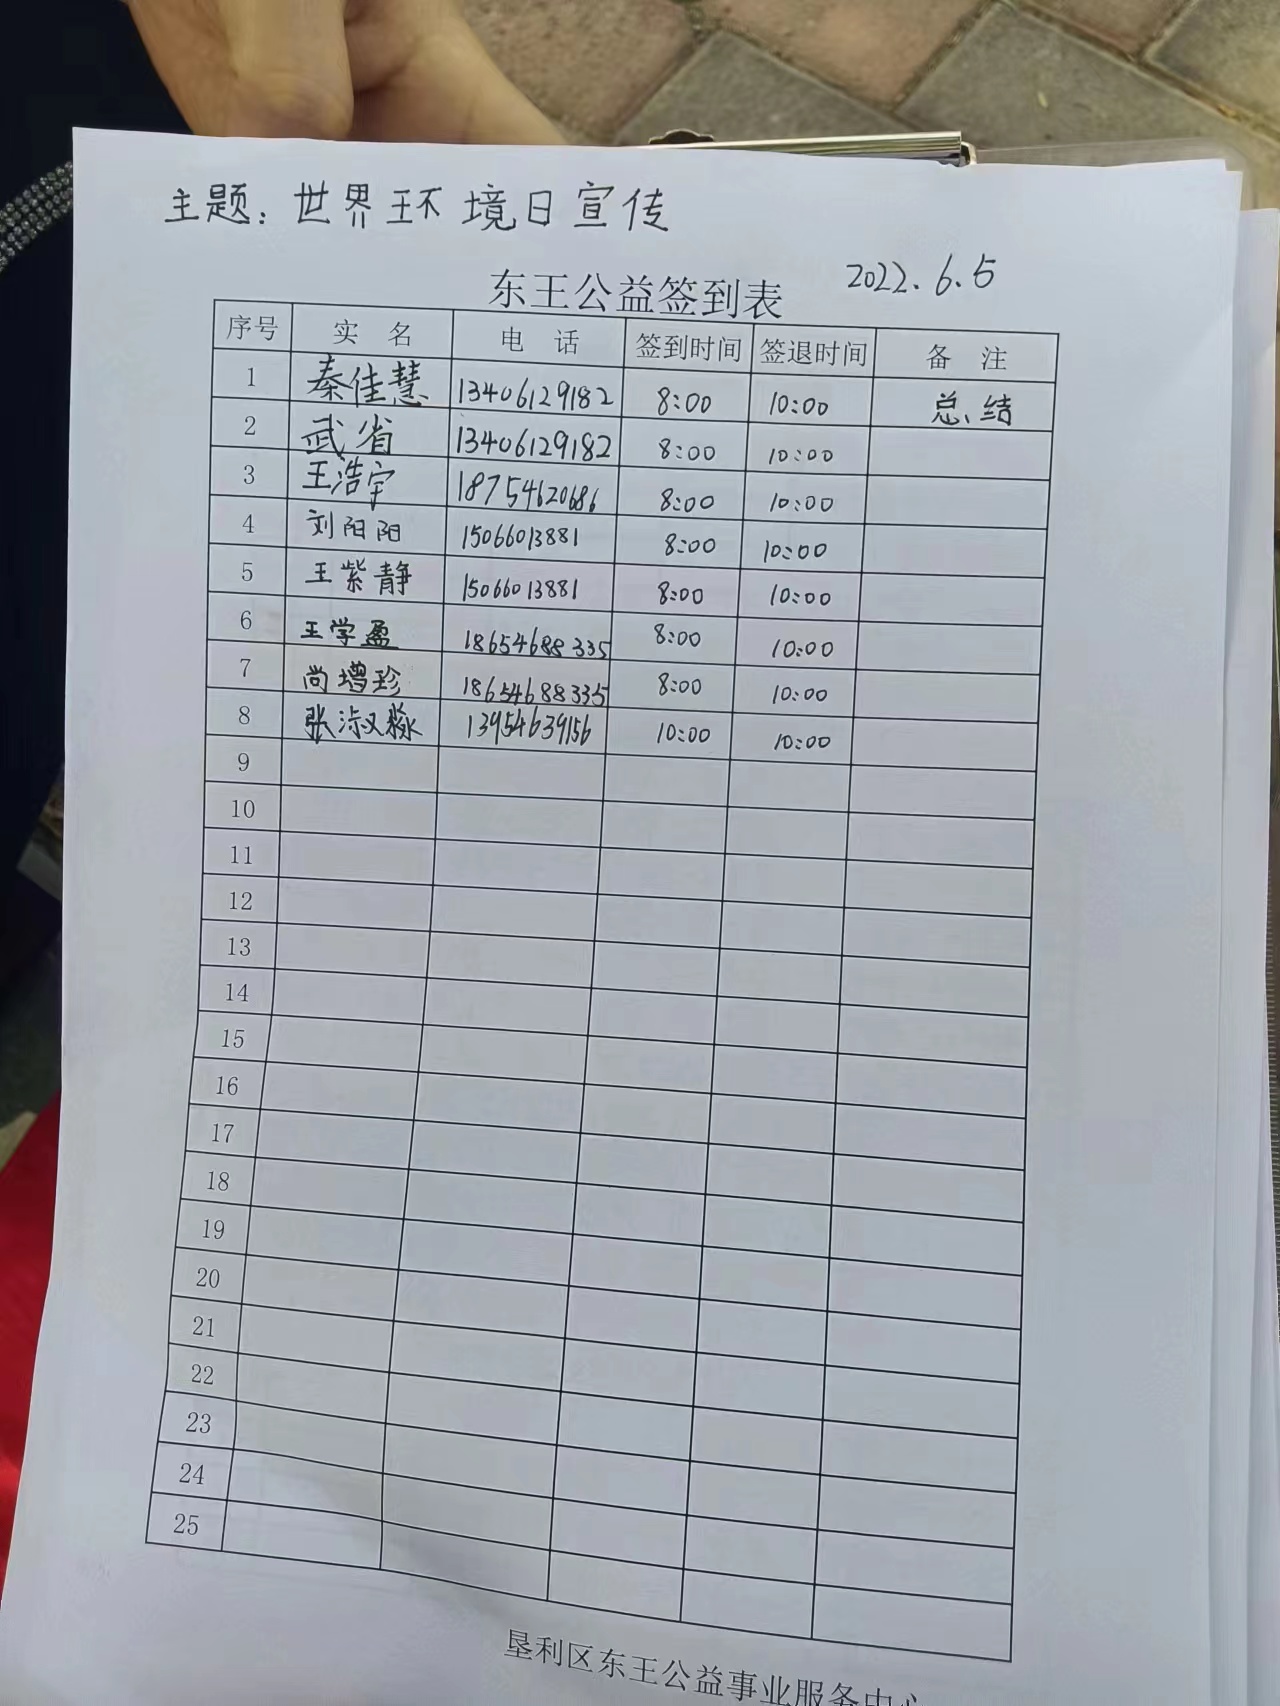 主题:世界环境日宣传
东王公益签到表 2022.6.5
序号 实 名 电 话 签到时间 签退时间 备 注
1 秦佳慧 13406129182 8:00 10:00 总结
2 武省 13406129182 8:00 10:00
3 王浩宇 18754620686 8:00 10:00
4 刘阳阳 15066013881 8:00 10:00
5 王紫静 15066013881 8:00 10:00
6 王学盈 18654688335 8:00 10:00
7 尚增珍 18654688335 8:00 10:00
8 张淑 13954639156 10:00 10:00
9
10
11
12
13
14
15
16
17
18
19
20
21
22
23
24
25
垦利区东王公益事业服务中心